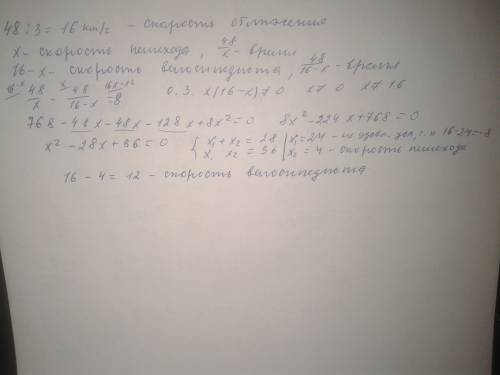 48 : 3 = 16 км/г - скорость сближения
x - скорость пешехода, 48/x - время
16-x - скорость велосипедиста, 48/16-x - время
48/x - 48/16-x = 8 О.З. x(16-x)≠0 x≠0 x≠16
768 - 48x - 48x - 128x + 8x² = 0 8x² - 224x + 768 = 0
x² - 28x + 96 = 0 { x₁ + x₂ = 28 x₁ x₂ = 96 | x₁ = 24 - не удовл. усл, т.к 16-24=-8 x₂ = 4 - скорость пешехода
16 - 4 = 12 - скорость велосипедиста